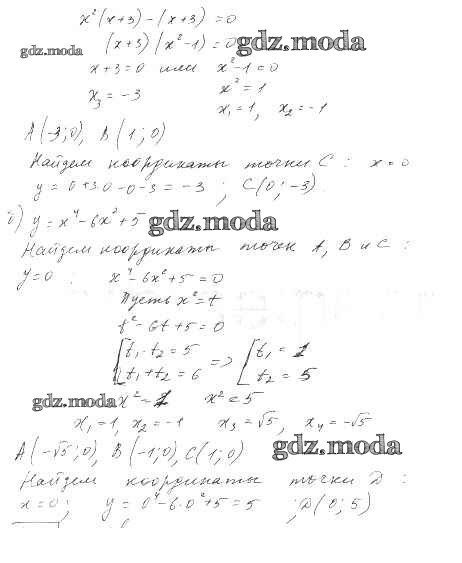 x²(x+3) - (x+3) = 0
gdz.moda (x+3)(x²-1) = 0 gdz.moda
x+3=0 или x²-1=0
x₃ = -3 x² = 1
x₁ = 1, x₂ = -1
A(-3;0), B(1;0)
Найдем координаты точки C: x = 0
y = 0+3·0-0-3 = -3; C(0;-3)
б) y = x⁴-6x²+5 gdz.moda
Найдем координаты точек A, B и C:
y=0: x⁴-6x²+5=0
Пусть x²=t
t²-6t+5=0
t₁·t₂=5 => t₁=1
t₁+t₂=6 t₂=5
gdz.moda x²=1 x²=5
x₁=1, x₂=-1 x₃=√5, x₄=-√5
A(-√5;0), B(-1;0), C(1;0) gdz.moda
Найдем координаты точки D:
x=0; y=0⁴-6·0²+5=5; D(0;5)